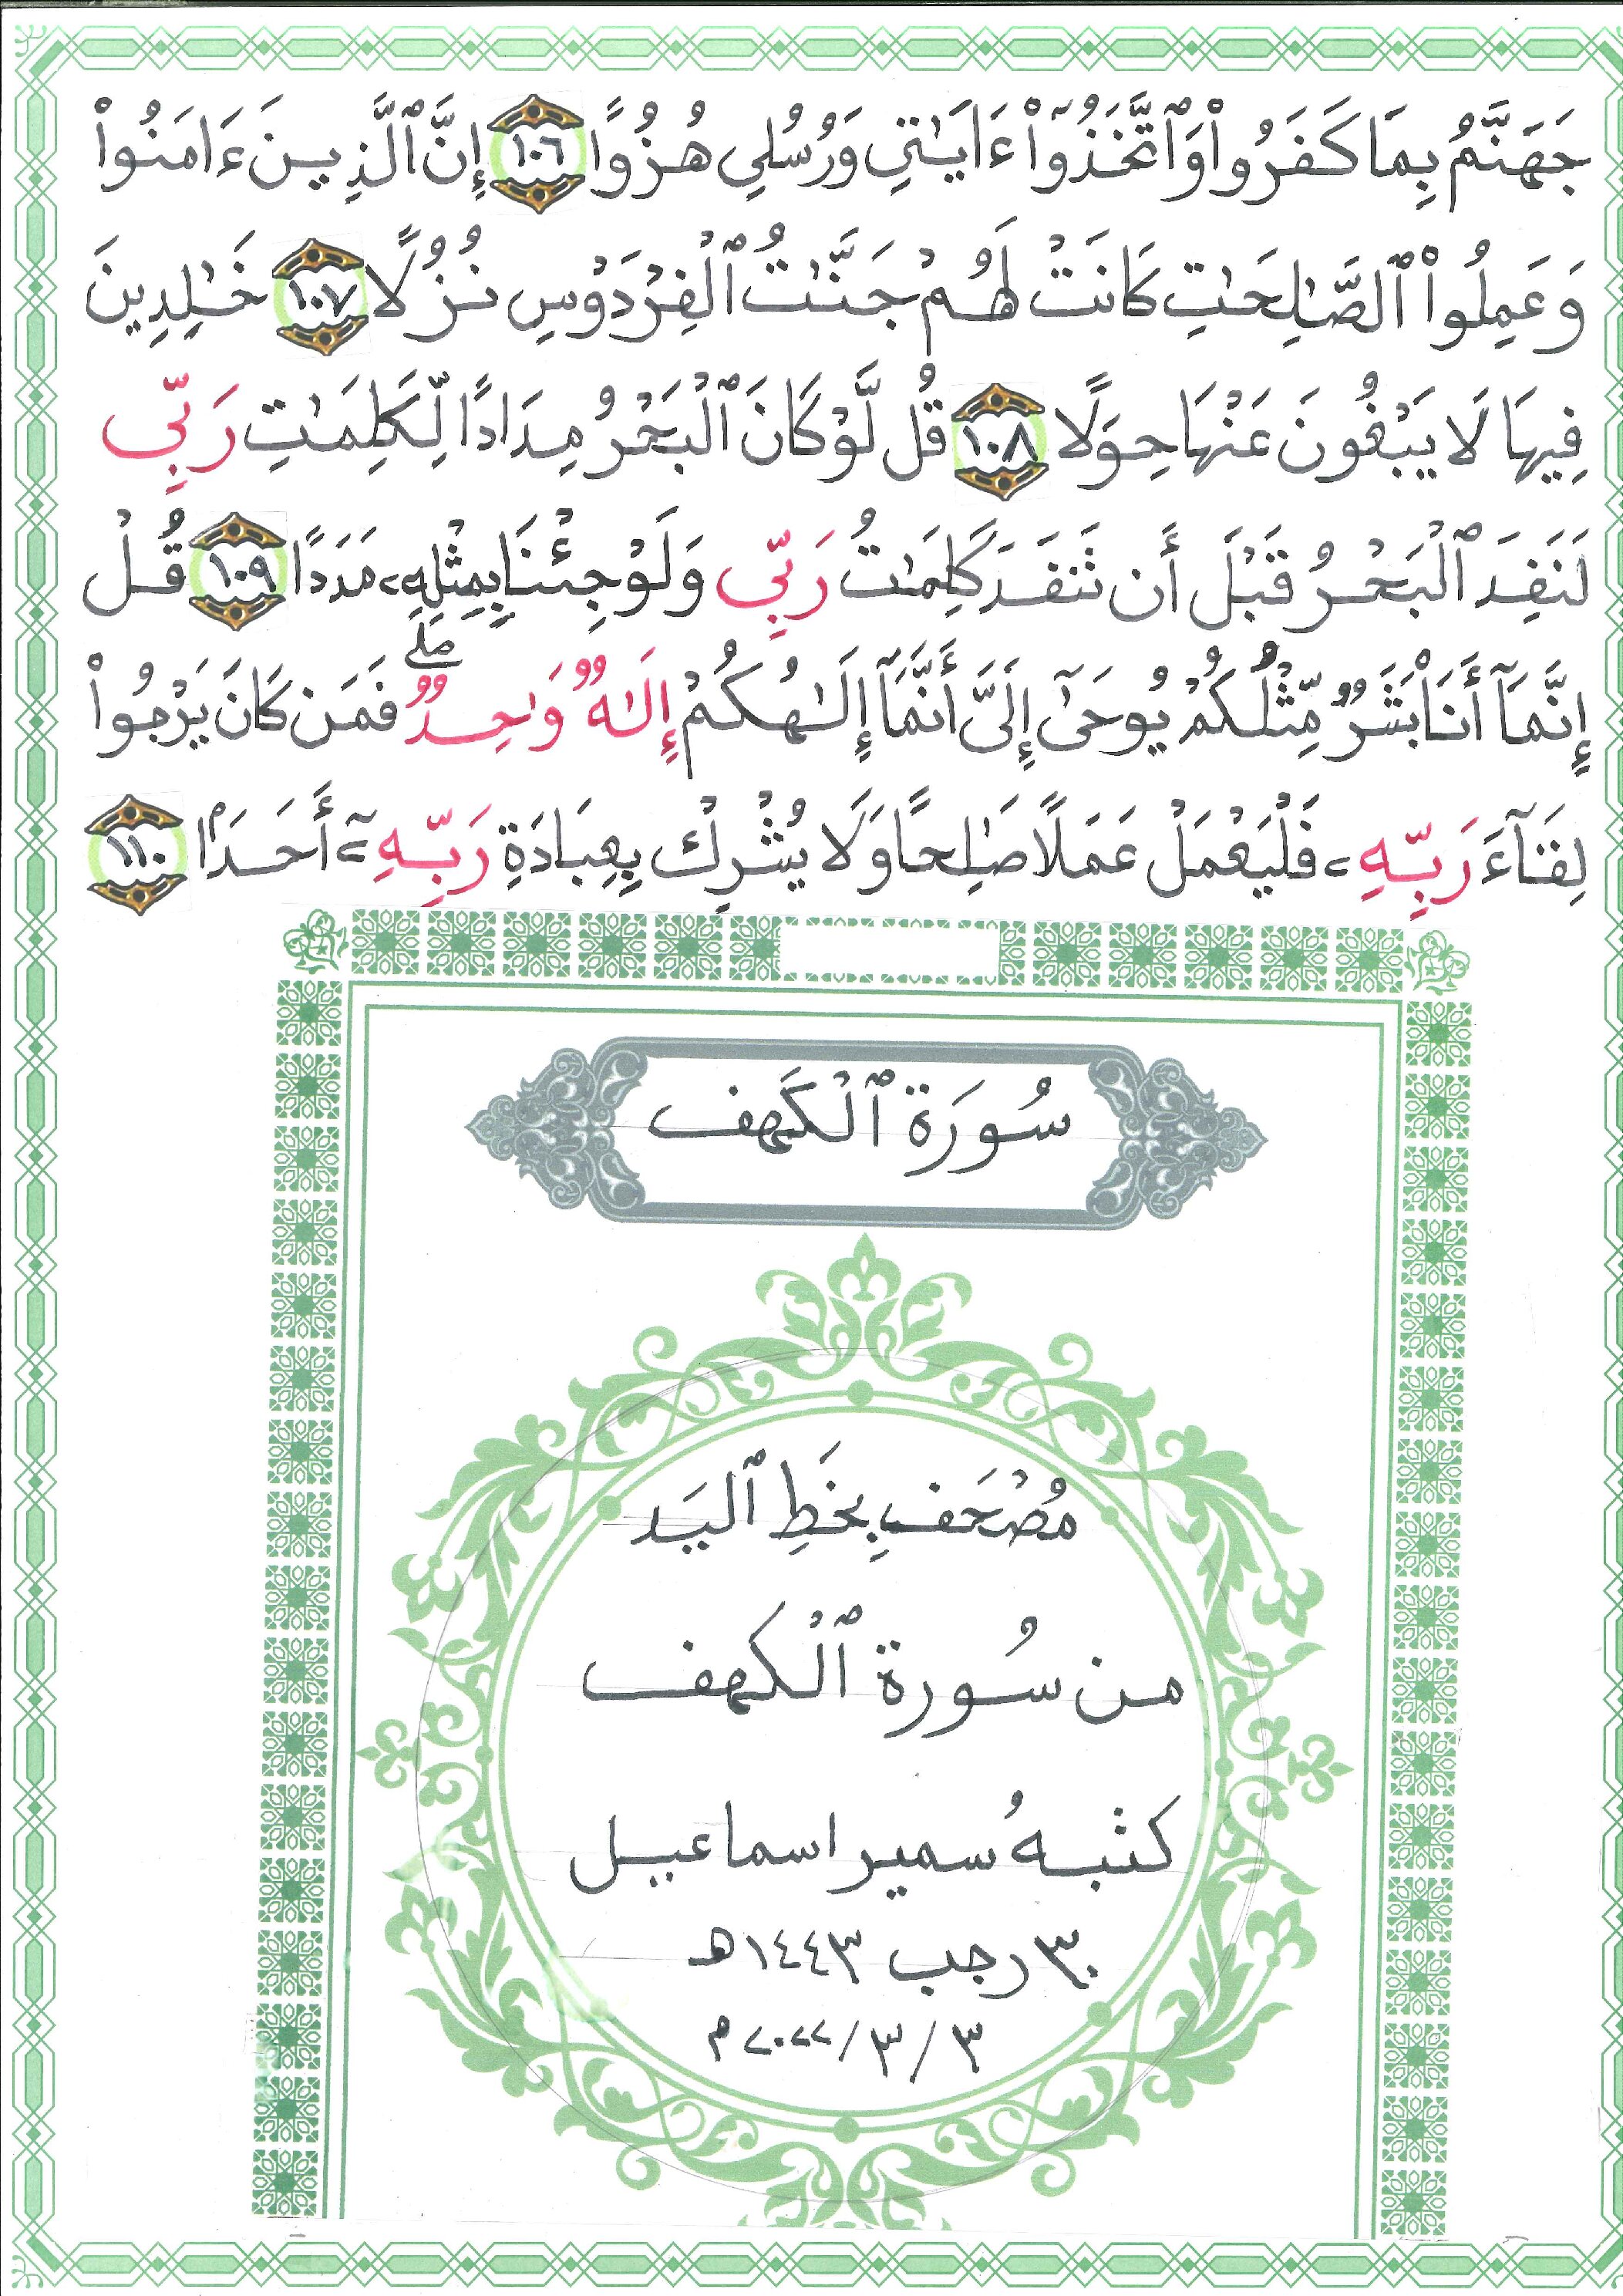 جَهَنَّمُ بِمَا كَفَرُوا۟ وَٱتَّخَذُوٓا۟ ءَايَـٰتِى وَرُسُلِى هُزُوًا ١٠٦ إِنَّ ٱلَّذِينَ ءَامَنُوا۟
وَعَمِلُوا۟ ٱلصَّـٰلِحَـٰتِ كَانَتْ لَهُمْ جَنَّـٰتُ ٱلْفِرْدَوْسِ نُزُلًا ١٠٧ خَـٰلِدِينَ
فِيهَا لَا يَبْغُونَ عَنْهَا حِوَلًا ١٠٨ قُل لَّوْ كَانَ ٱلْبَحْرُ مِدَادًا لِّكَلِمَـٰتِ رَبِّى
لَنَفِدَ ٱلْبَحْرُ قَبْلَ أَن تَنفَدَ كَلِمَـٰتُ رَبِّى وَلَوْ جِئْنَا بِمِثْلِهِۦ مَدَدًا ١٠٩ قُلْ
إِنَّمَآ أَنَا۠ بَشَرٌ مِّثْلُكُمْ يُوحَىٰٓ إِلَىَّ أَنَّمَآ إِلَـٰهُكُمْ إِلَـٰهٌ وَٰحِدٌ ۖ فَمَن كَانَ يَرْجُوا۟
لِقَآءَ رَبِّهِۦ فَلْيَعْمَلْ عَمَلًا صَـٰلِحًا وَلَا يُشْرِكْ بِعِبَادَةِ رَبِّهِۦٓ أَحَدًۢا ١١٠
سُورَة ٱلْكَهف
مُصْحَف بِخَطِ ٱليَد
من سُورة ٱلْكهف
كتبهُ سمير اسماعيل
٣٠ رجب ١٤٤٣هـ
٣/٣/٢٠٢٢م